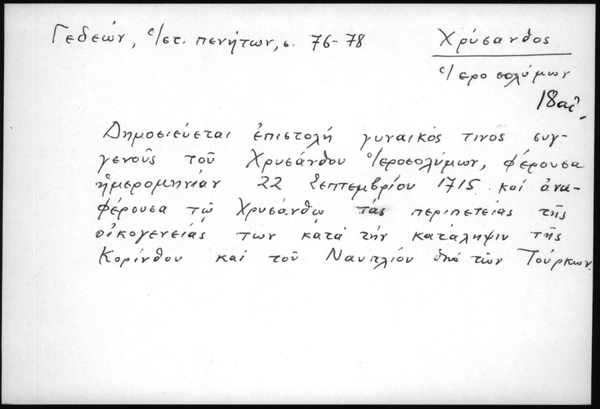 Γεδεών, Ἱστ. πενήτων, σ. 76-78
Χρύσανθος
Ἱεροσολύμων
18 αἰ.
Δημοσιεύεται ἐπιστολή γυναικός τινος συγ-
γενοῦς τοῦ Χρυσάνθου Ἱεροσολύμων, φέρουσα
ἡμερομηνίαν 22 Σεπτεμβρίου 1715 καί ἀνα-
φέρουσα τῷ Χρυσάνθῳ τάς περιπετείας τῆς
οἰκογενείας των κατά τήν κατάληψιν τῆς
Κορίνθου καί τοῦ Ναυπλίου ὑπό τῶν Τούρκων.